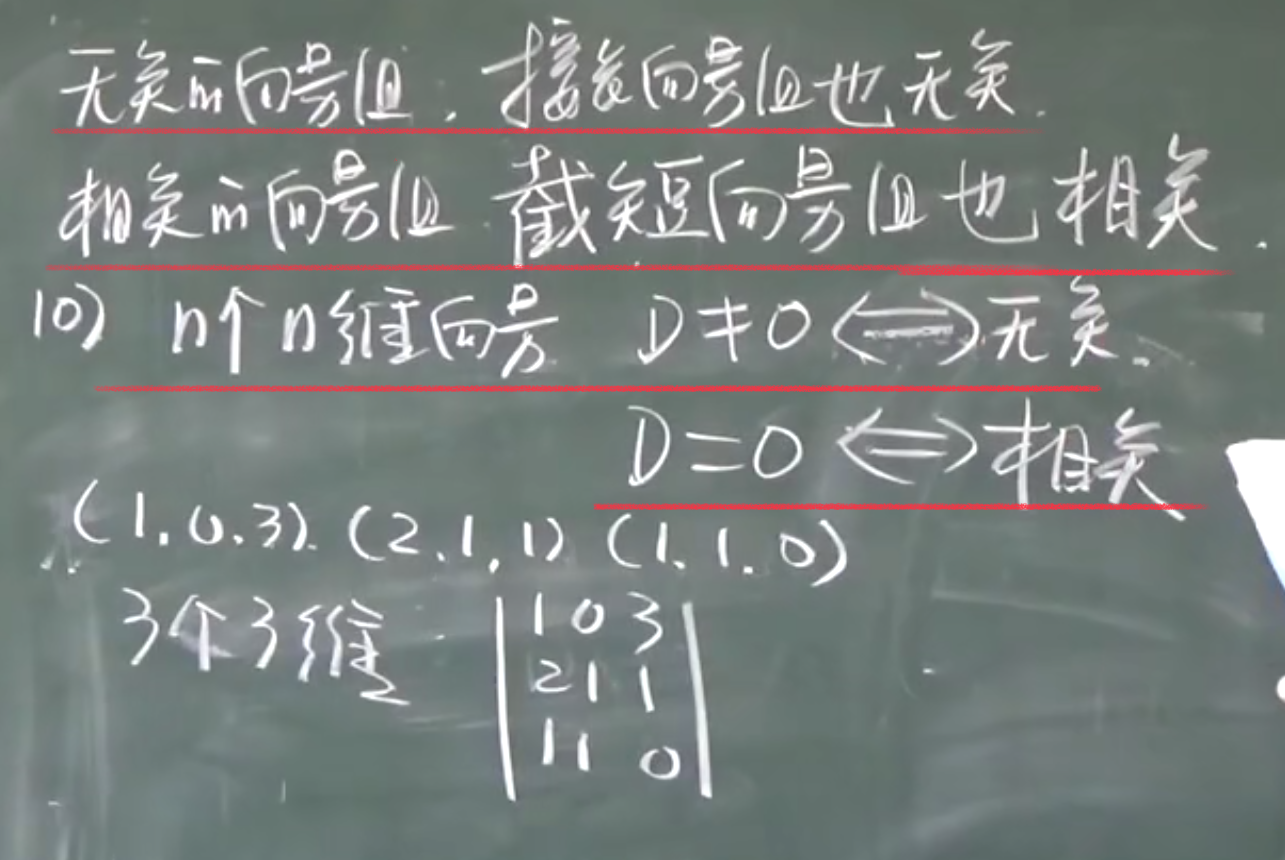 无关的向量组,接长向量组也无关.
相关的向量组 截短向量组也相关.
10) n个n维向量 D≠0⟺无关.
D=0⟺相关
(1.0.3). (2.1.1) (1.1.0)
3个3维
1 0 3
2 1 1
1 1 0